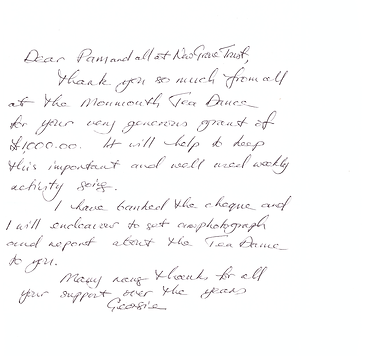 Dear Pam and all at NeoGrove Trust,
Thank you so much from all
at the Monmouth Tea Dance
for your very generous grant of
£1,000.00. It will help to keep
this important and well used weekly
activity going.
I have banked the cheque and
I will endeavour to get a photograph
and report about the Tea Dance
to you.
Many many thanks for all
your support over the years
Georgie